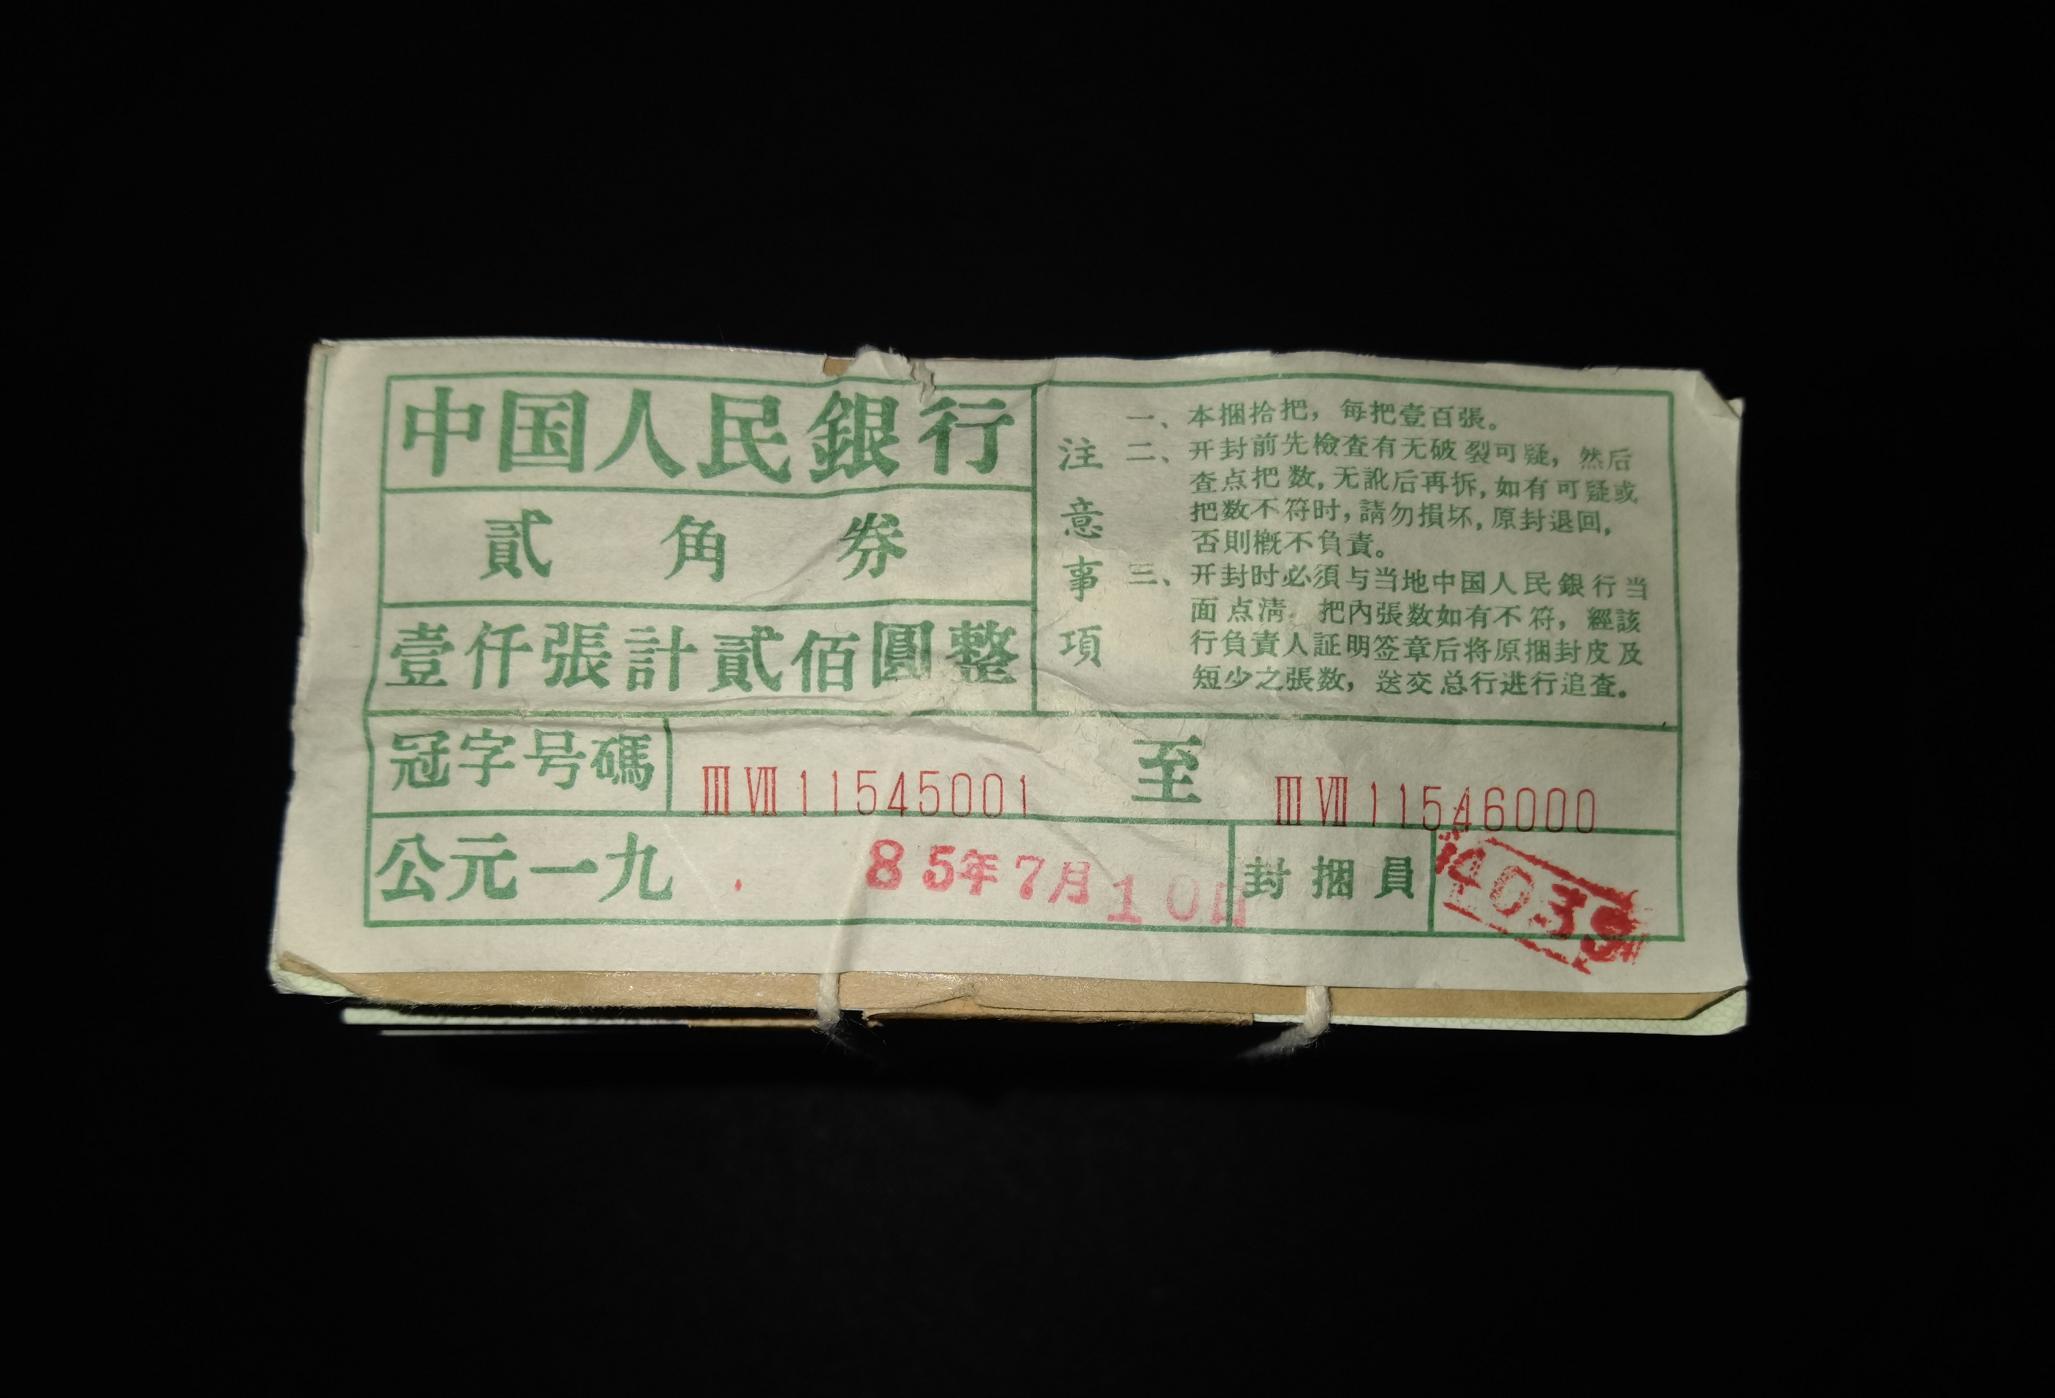 中国人民銀行
貳角券
壹仟張計貳佰圓整
注意事項
一、本捆拾把，每把壹百張。
二、开封前先檢查有无破裂可疑，然后
查点把数，无訛后再拆，如有可疑或
把数不符时，請勿損坏，原封退回，
否則概不負責。
三、开封时必須与当地中国人民銀行当
面点清。把內張数如有不符，經該
行負責人証明签章后将原捆封皮及
短少之張数，送交总行进行追査。
冠字号碼 ⅢⅦ11545001 至 ⅢⅦ11546000
公元一九 85年7月10日 封捆員 4039